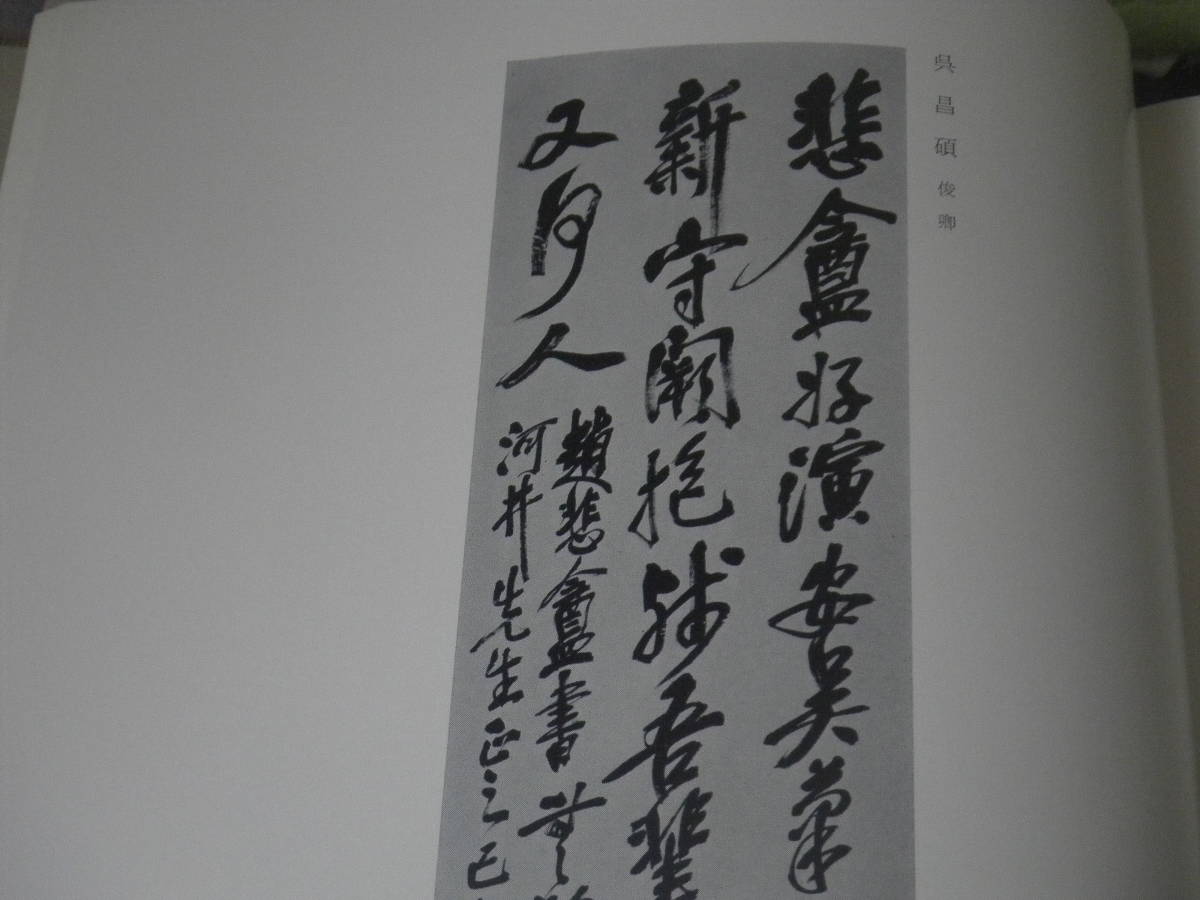 吳昌碩 俊卿
悲盦好演安吳
新守闕抱殘吾輩
又何人
趙悲盦書
河井先生正之己